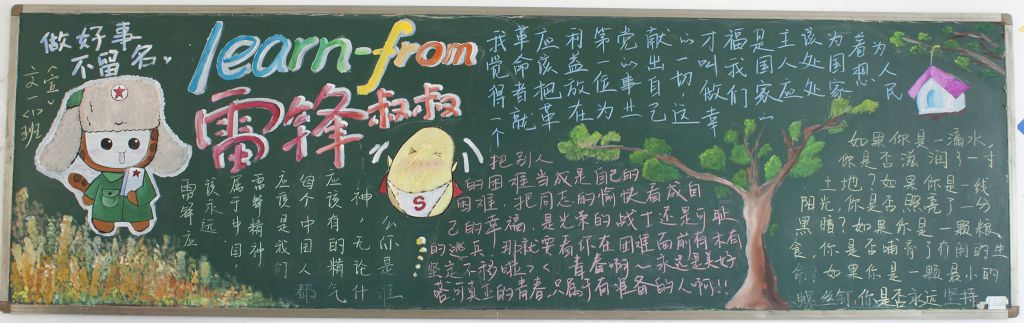 做好事
不留名
learn-from
雷锋叔叔
我觉得一个
革命者就
应该把革
利益放在
第一位为
党的事业
献出自己
的一切这
才叫做幸
福我们
是国家
主人应
该处处
为国家
着想
为人民
雷锋应
该永远
属于中国
雷锋精神
应该是我们
每个中国人都
应该有的精气
神,无论什
么你是谁
把别人
的困难当成是自己的
困难,把同志的愉快看成自
己的幸福,是光荣的战士还是可耻
的逃兵,那就要看你在困难面前有木有
坚定不移啦><,青春啊~永远是美好
落可真正的青春,只属于有准备的人啊!!
S
如果你是一滴水,
你是否滋润了一寸
土地?如果你是一线
阳光,你是否照亮了一分
黑暗?如果你是一颗粮
食,你是否哺育了有用的生
命,如果你是一颗最小的
螺丝钉,你是否永远坚持